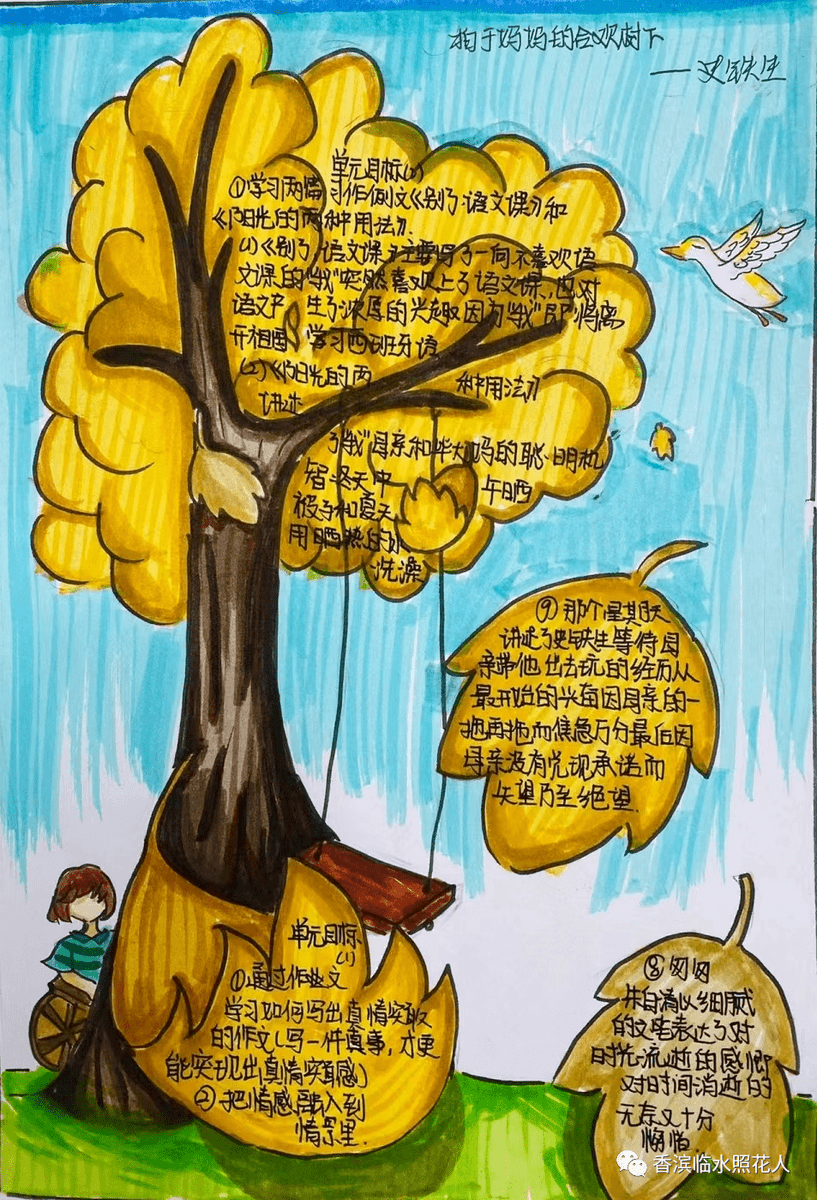 相于妈妈的合欢树下
——史铁生
单元目标(2)
①学习两情习作例文《别了语文课》和
《阳光的两种用法》.
(1)《别了语文课》主要写了一向不喜欢语
文课的"我"突然喜欢上了语文课,也对
语文产生了浓厚的兴趣因为"我"即将离
开祖国,学习西班牙语
(2)《阳光的两种用法》
讲述
了"我"母亲和毕大妈的聪明机
智冬天中午日晒
被子和夏天
用日晒热的水
洗澡
⑨那个星期天
讲述了史铁生等待母
亲带他出去玩的经历从
最开始的兴奋因母亲的一
拖再拖而焦急万分最后因
母亲没有兑现承诺而
失望乃至绝望.
单元目标
(1)
①通过作业文
学习如何写出真情实感
的作文(写一件真事,才更
能实现出真情实感)
②把情感融入到
情景里.
⑧匆匆
朱自清以细腻
的文笔表达了对
时光流逝的感慨
对时间消逝的
无奈又十分
惋惜
香滨临水照花人